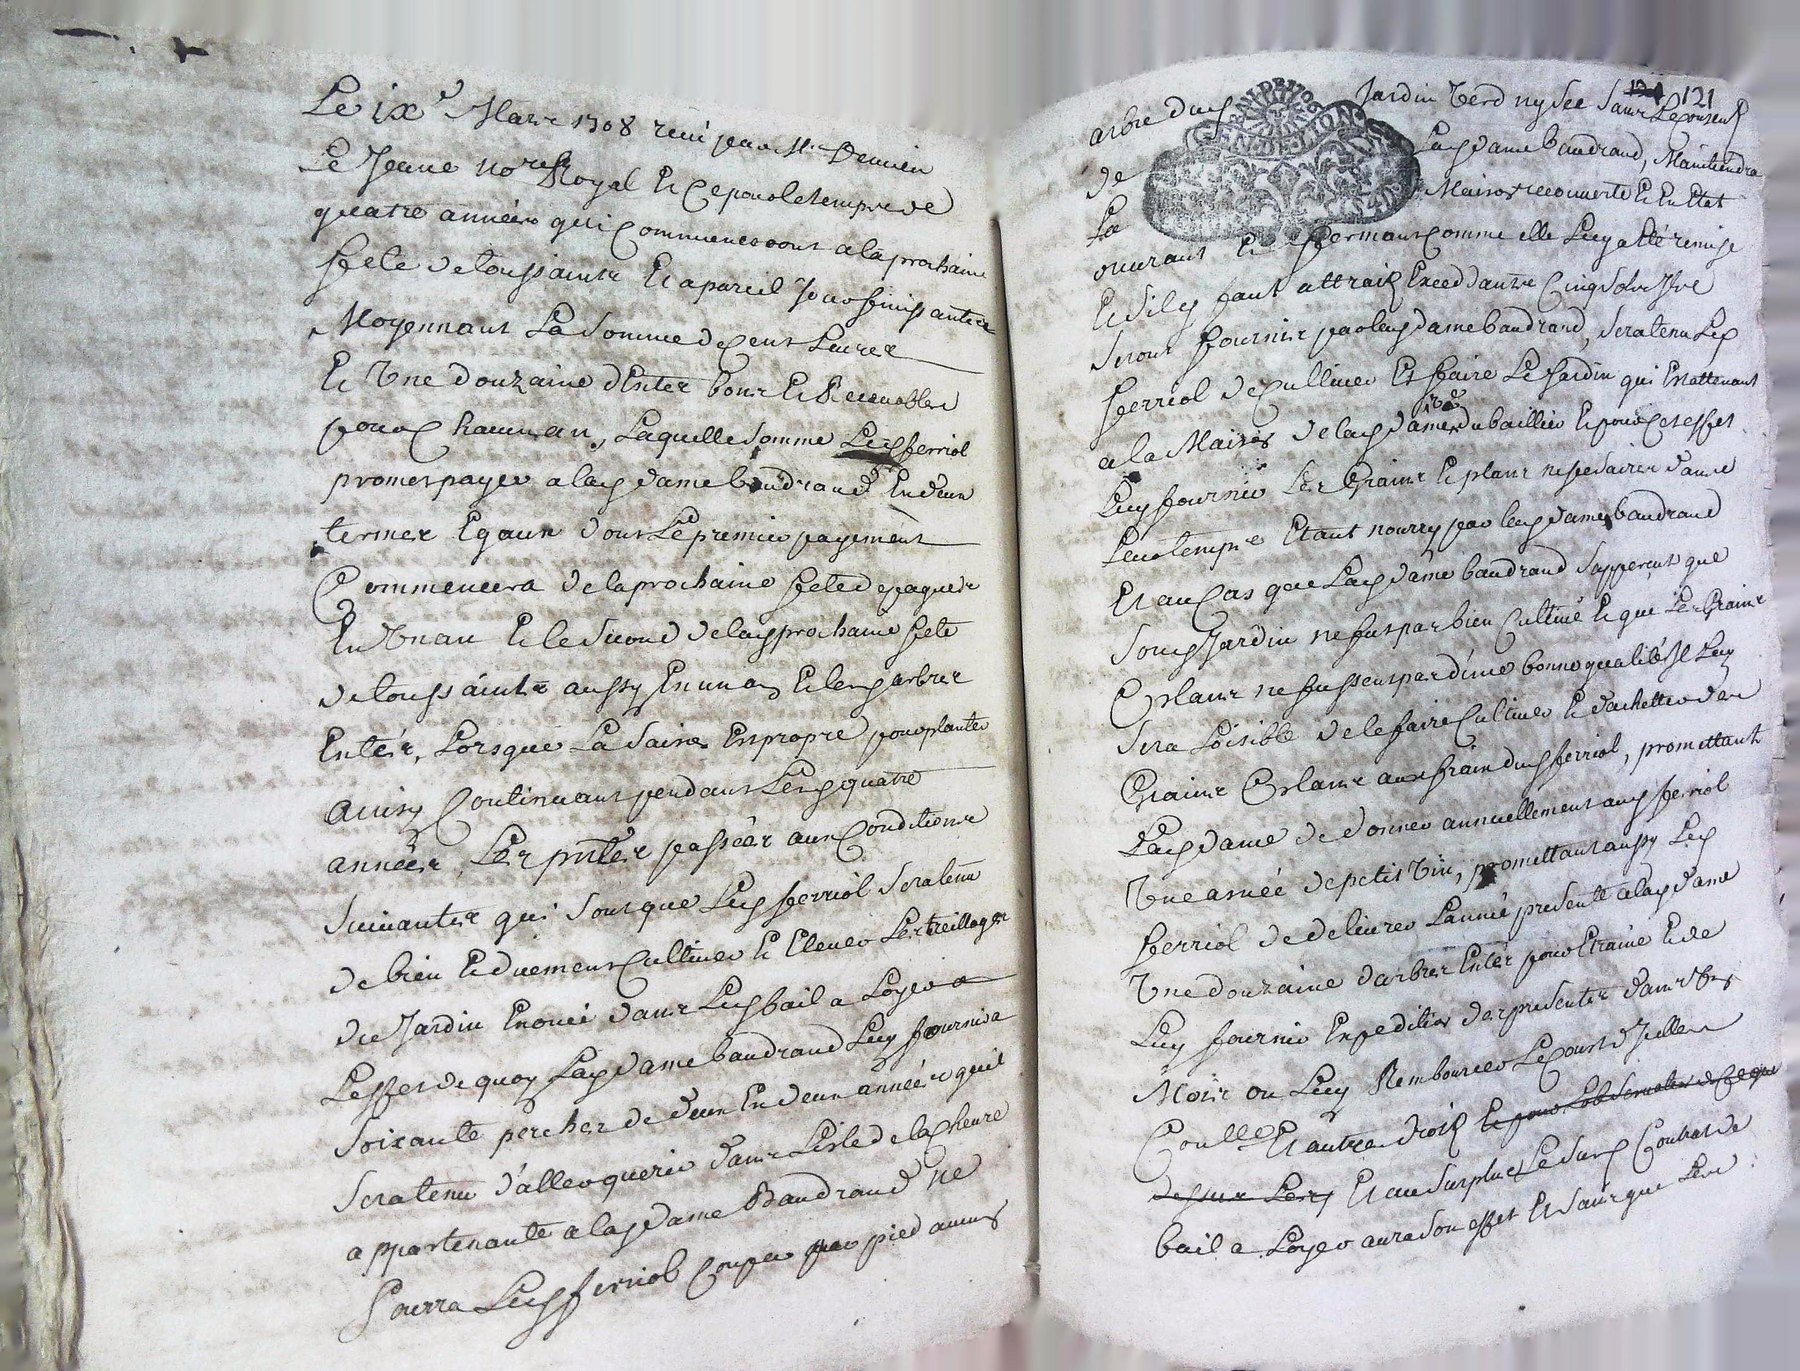 Le ix.e Mars 1708 receu par M.e Demien
Le Jeune no.re Royal Et Ce pour le temps de
quatre années qui Commenceront a la prochaine
feste de toussaints Et a pareil Jour finissantes
Moyennant La Somme de Cent Livres
Et Une douzaine d'Entes bons Et Recevables
pour Chacun an, Laquelle Somme Led ferriol
promet payer a lad dame baudrand En deux
termes Egaux dont Le premier payement
Commencera de la prochaine feste de paques
En Un an Et le Second de lad prochaine feste
de toussaints aussy En un an Et lesd arbres
Entés, Lorsque La Saison Est propre pour planter
ainsy Continuant pendant Lesd quatre
années, Les pntes passées aux Conditions
Suivantes qui Sont que Led ferriol Sera tenu
de bien Et duement Cultiver Et Elever Les treillages
du Jardin Enoncé dans Led bail a Loyer
a Leffet de quoy Lad dame baudrand Luy fournira
Soixante perches de deux En deux années quil
Sera tenu d'aller querir dans Lisle de la Cheure
appartenante a lad dame Baudrand Ne
Pourra Led ferriol Couper par pied aucuns
121
arbre dud Jardin Verd ny Sec Sans Le Consent
de Lad dame baudrand, Maintiendra
La Maison recouverte Et En Etat
ouvrant Et fermant Comme elle Luy a Eté remise
Et Sil y faut attraits Exced dantre Cinq Sols Ils
Seront fournis par lad dame baudrand, Sera tenu Led
ferriol de Cultiver Et faire Le Jardin qui Est attenant
a la Maison de lad dame du baillier Et pour Cet effet
Luy fournir Les Grains Et plans nessesaires dans
Leur temps Etant nourry par lad dame baudrand
Et au Cas que Lad dame baudrand Sapperçut que
Sond Jardin ne fut pas bien Cultivé Et que Les Grains
Et plans ne fussent pas d'une bonne qualité Il Luy
Sera Loisible de le faire Cultiver Et d'achetter des
Grains Et plans aux frais dud ferriol, promettant
Lad dame de donner annuellement aud ferriol
Une anée de petit Vin, promettant aussy Led
ferriol de delivrer Lannée presente a lad dame
Une douzaine d'arbres Entés pour Etraine Et de
Luy fournir Expedition des presentes dans Un
Mois ou Luy Rembourcer Le Coust d'Icelles
Coulle Et autres droits Et pour Lobservation de Ce que
dessus Lesd Et au Surplus Le Susd Contrat de
bail a Loyer aura Son effet Et Sans que Les